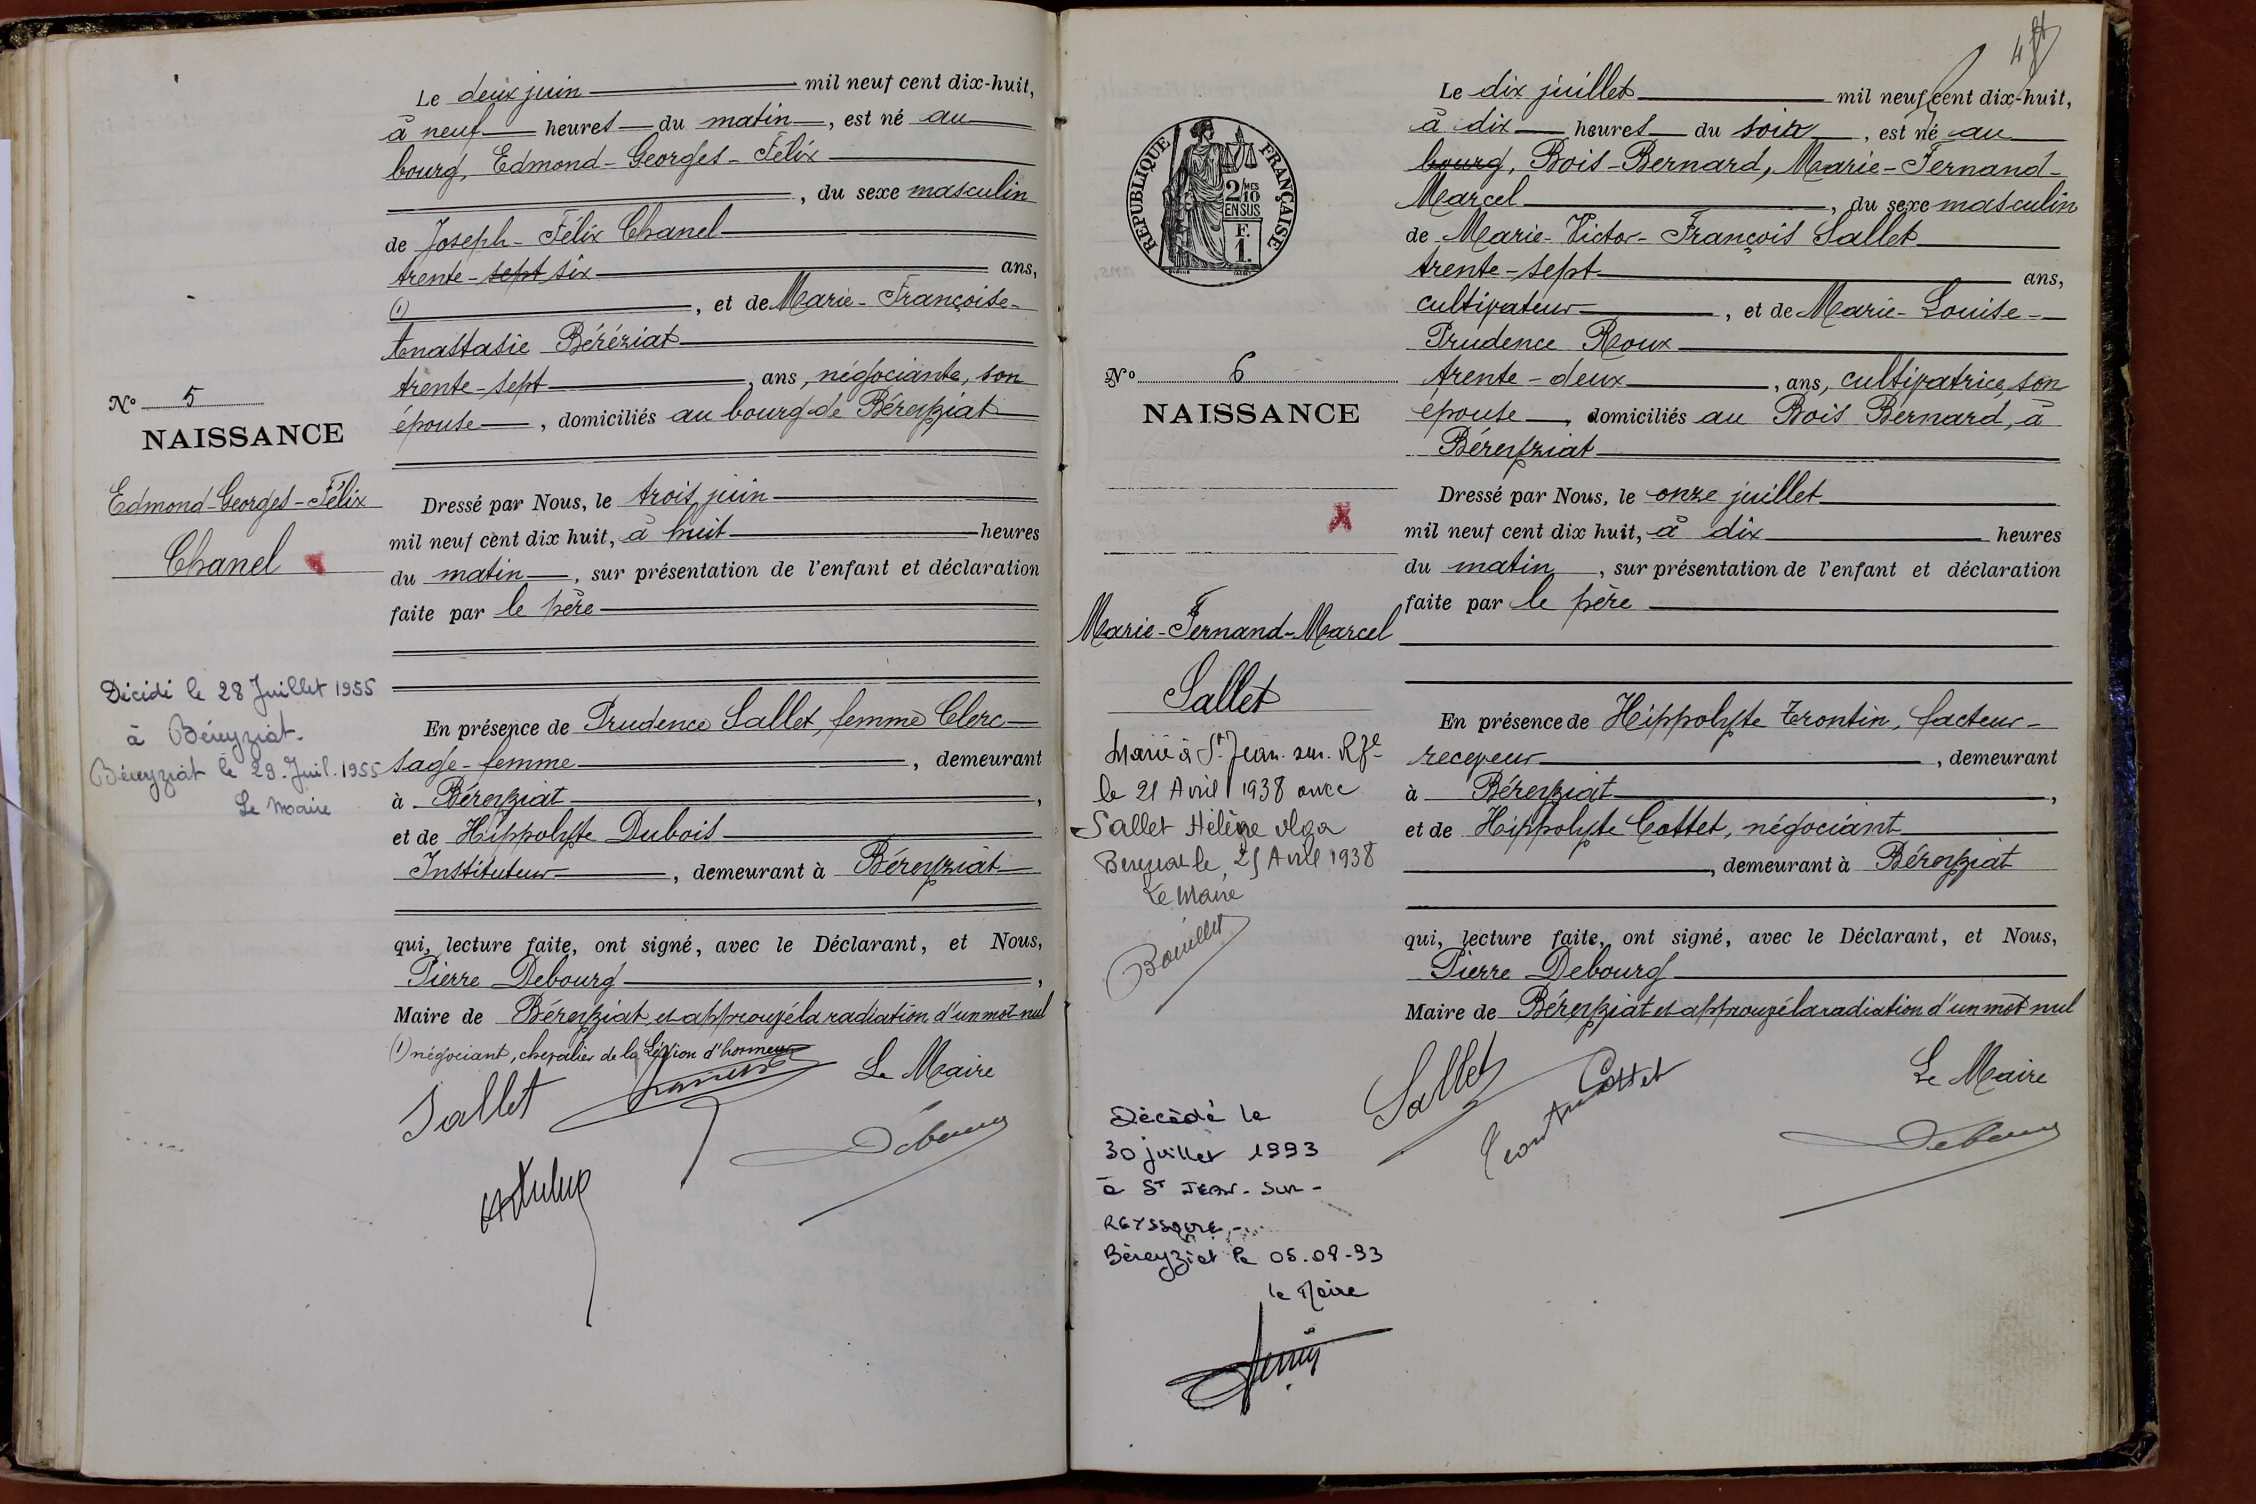 Le deux juin mil neuf cent dix-huit,
à neuf heures du matin, est né au
bourg, Edmond-Georges-Félix
, du sexe masculin
de Joseph-Félix Chanel
trente-sept six ans,
(1) , et de Marie-Françoise-
Anastasie Béréziat
trente-sept, ans, négociante, son
épouse, domiciliés au bourg de Béreyziat
Nº 5
NAISSANCE
Edmond-Georges-Félix
Chanel
Dressé par Nous, le trois juin
mil neuf cent dix huit, à huit heures
du matin, sur présentation de l'enfant et déclaration
faite par le père
Décédé le 28 Juillet 1955
à Béreyziat.
Béreyziat le 29. Juil. 1955
Le Maire
En présence de Prudence Sallet, femme Clerc
sage-femme, demeurant
à Béreyziat,
et de Hippolyte Dubois
Instituteur, demeurant à Béreyziat
qui, lecture faite, ont signé, avec le Déclarant, et Nous,
Pierre Debourg,
Maire de Béreyziat et approuvé la radiation d'un mot nul
(1) négociant, chevalier de la Légion d'honneur
Sallet Le Maire
Debourg
4
RÉPUBLIQUE FRANÇAISE
2/10MES
EN SUS
F.
1.
Le dix juillet mil neuf cent dix-huit,
à dix heures du soir, est né au
bourg, Bois-Bernard, Marie-Fernand-
Marcel, du sexe masculin
de Marie-Victor-François Sallet
trente-sept ans,
cultivateur, et de Marie-Louise-
Prudence Roux
trente-deux, ans, cultivatrice, son
épouse, domiciliés au Bois Bernard, à
Béreyziat
Nº 6
NAISSANCE
Marie-Fernand-Marcel
Sallet
Dressé par Nous, le onze juillet
mil neuf cent dix huit, à dix heures
du matin, sur présentation de l'enfant et déclaration
faite par le père
Marié à St Jean. sur. Rze
le 21 Avril 1938 avec
Sallet Hélène Olga
Bereyziat le, 25 Avril 1938
Le Maire
Bouillet
En présence de Hippolyte Trontin, facteur-
receveur, demeurant
à Béreyziat,
et de Hippolyte Cottet, négociant
, demeurant à Béreyziat
qui, lecture faite, ont signé, avec le Déclarant, et Nous,
Pierre Debourg
Maire de Béreyziat et approuvé la radiation d'un mot nul
Sallet Cottet Le Maire
Trontin Debourg
Décédé le
30 juillet 1993
à ST JEAN-SUR-
REYSSOUZE
Béreyziat le 05.08-93
le Maire